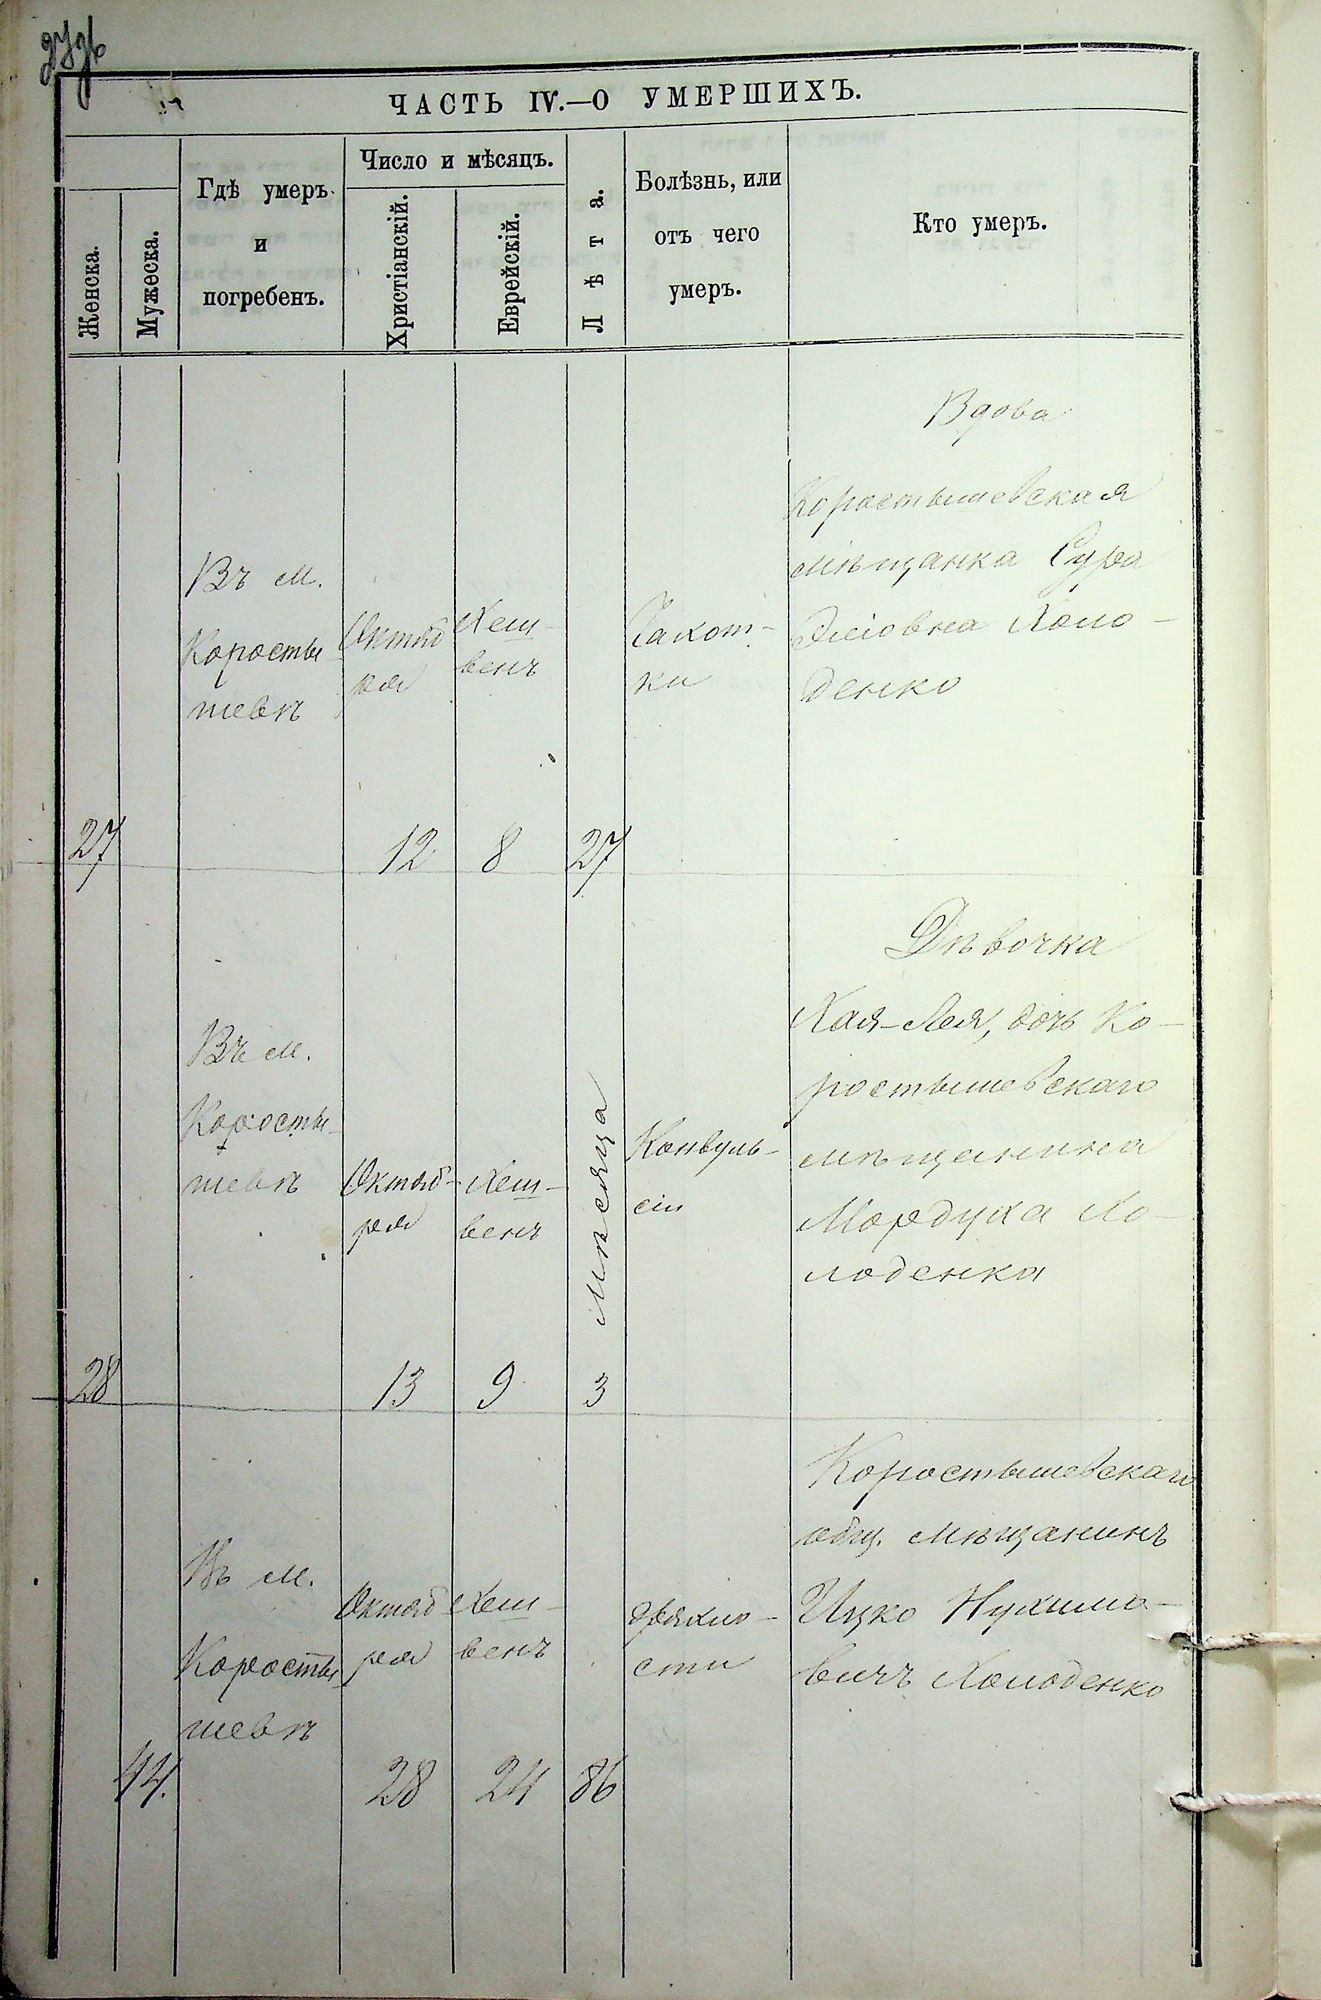 ЧАСТЬ IV.—О УМЕРШИХЪ.
Женска.
Мужеска.
Гдѣ умеръ
и
погребенъ.
Число и мѣсяцъ.
Христіанскій.
Еврейскій.
Лѣта.
Болѣзнь, или
отъ чего
умеръ.
Кто умеръ.
27
Въ м.
Коросты-
шевѣ
Октяб
ря
12
Хеш-
венъ
8
27
Чахот-
ки
Вдова
Коростышевская
мѣщанка Сура
Эліовна Холо-
денко
28
Въ м.
Коросты-
шевѣ
Октяб-
ря
13
Хеш-
венъ
9
3 мѣсяца
Конвуль-
сіи
Дѣвочка
Хая-Лея, дочь Ко-
ростышевскаго
мѣщанина
Мордуха Хо-
лоденка
44.
Въ м.
Коросты-
шевѣ
Октяб
ря
28
Хеш-
венъ
24
86
дряхло-
сти
Коростышевскаго
общ. мѣщанинъ
Ицко Нухимо-
вичъ Холоденко